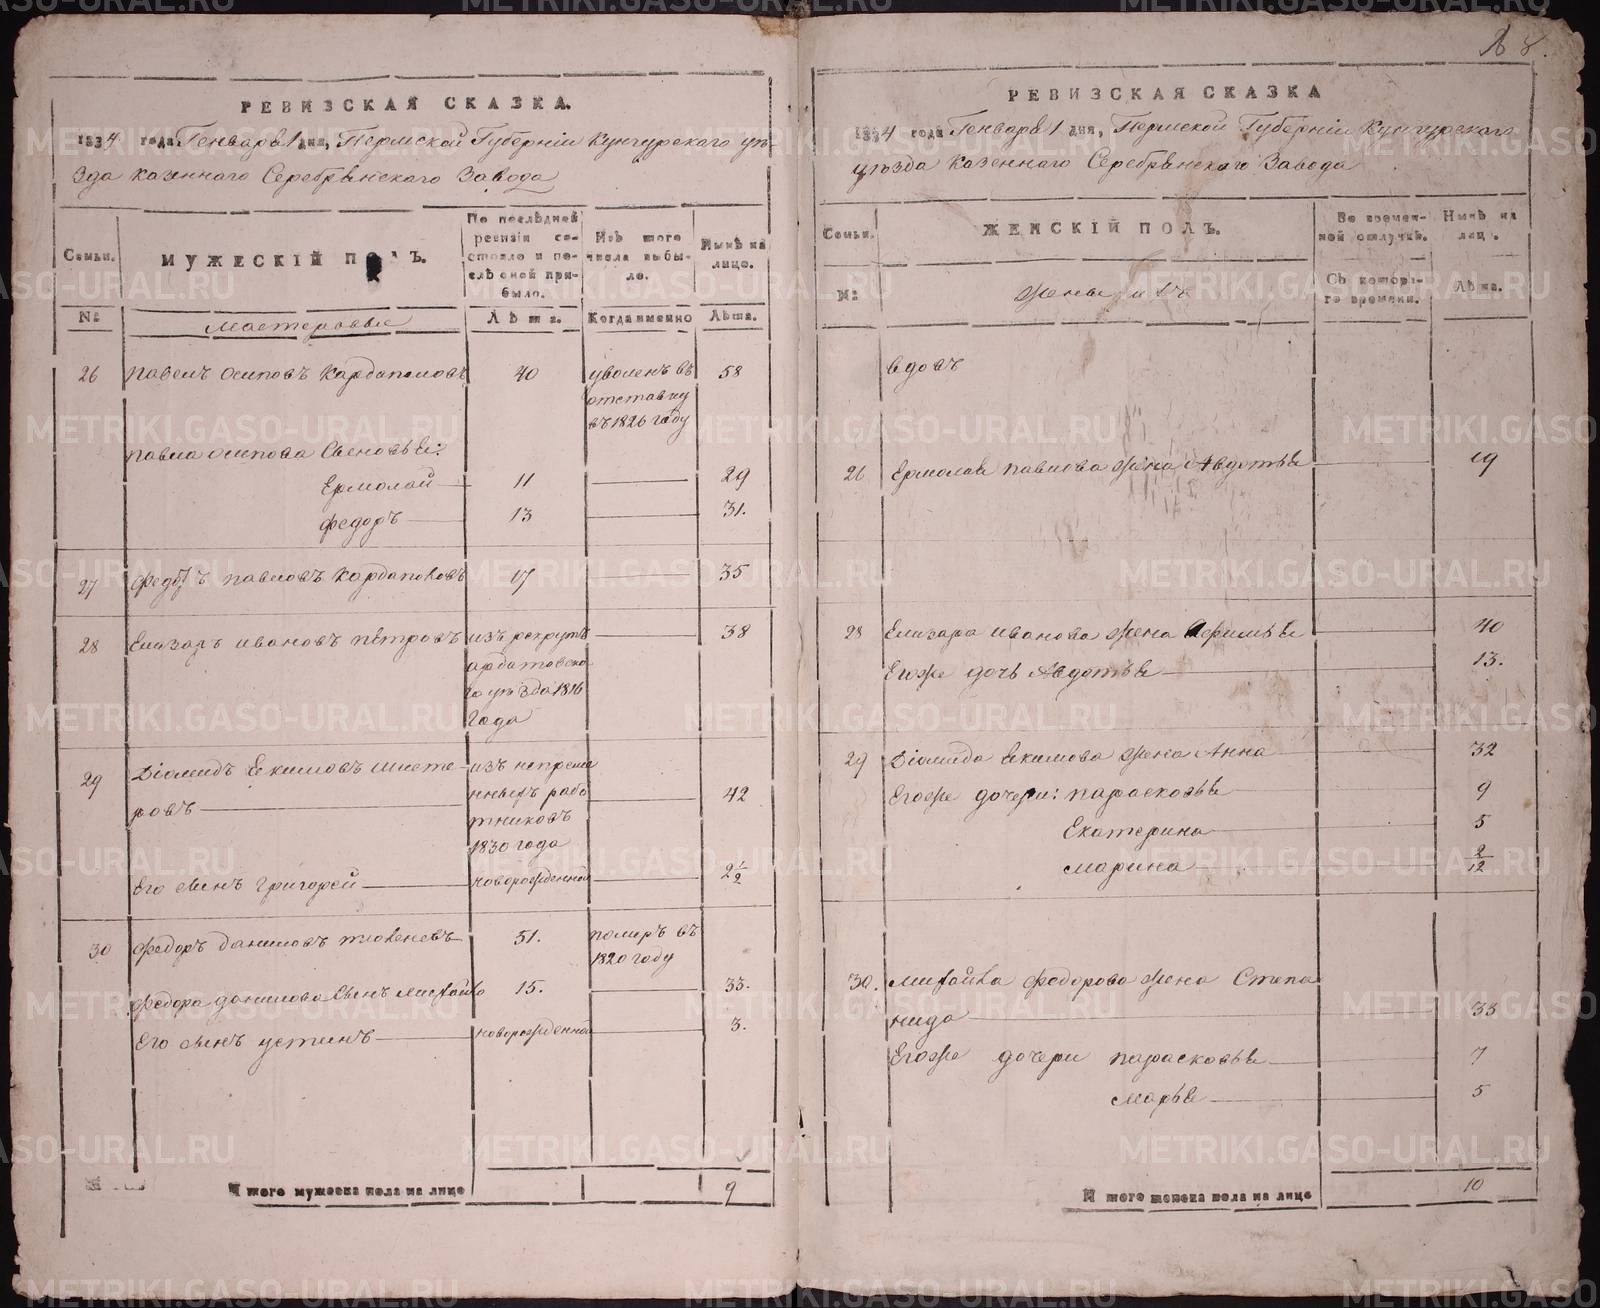 РЕВИЗСКАЯ СКАЗКА.
1834 года Генваря 1 дня, Пермской Губерніи Кунгурского уѣ-
зда казеннаго Серебрянскаго Завода
Семьи.
МУЖЕСКІЙ ПОЛЪ.
По послѣдней ревизіи состояло и послѣ оной прибыло.
Изъ того числа выбыло.
Нынѣ на лице.
№
мастеровые
Лѣта.
Когда именно
Лѣта.
26 павелъ осиповъ Кардаполовъ 40 уволенъ въ 58
отставку
въ 1826 году
павла осипова Сыновья:
Ермолай 11 29
федоръ 13 31.
27 федотъ павловъ Кардаполовъ 17 35
28 Елизаръ ивановъ петровъ изъ рекрутъ 38
ардатовско
го уѣзда 1816
года
29 Діомидъ Екимовъ шесте- изъ непреме
ровъ нныхъ рабо 42
тниковъ
1830 года
Его сынъ григорей новорожденной 2 1/2
30 федоръ даниловъ 51. помиръ въ
1820 году
федора данилова сынъ михайло 15. 33.
Его сынъ устинъ новорожденной 3.
Итого мужеска пола на лице 9
8.
РЕВИЗСКАЯ СКАЗКА
1834 года Генваря 1 дня, Пермской Губерніи Кунгурскаго
уѣзда Казеннаго Серебрянскаго Завода
Семьи.
ЖЕНСКІЙ ПОЛЪ.
Во временной отлучкѣ.
Нынѣ на лицо.
№
жены ихъ
Съ которого времени.
Лѣта.
вдовъ
26 Ермолая павлова жена Авдотья 19
28 Елизара иванова жена Афимья 40
Егоже дочь Авдотья 13.
29 Діомида Екимова жена Анна 32
Егоже дочери: парасковья 9
Екатерина 5
марина 2/12
30. михайла федорова жена Степа
нида 33
Егоже дочери парасковья 7
марья 5
Итого женска пола на лице 10
METRIKI.GASO-URAL.RU